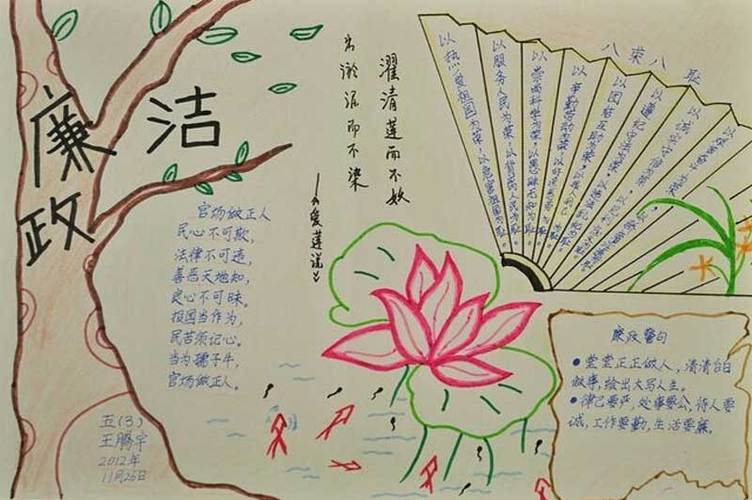 廉洁
政
出淤泥而不染
濯清莲而不妖
——《爱莲说》
八荣八耻
以热爱祖国为荣，以危害祖国为耻。
以服务人民为荣，以背离人民为耻。
以崇尚科学为荣，以愚昧无知为耻。
以辛勤劳动为荣，以好逸恶劳为耻。
以团结互助为荣，以损人利己为耻。
以遵纪守法为荣，
以诚实守信为荣，
以艰苦奋斗为荣，
官场做正人
民心不可欺，
法律不可违，
善恶天地知，
良心不可昧．
祖国当作为，
民苦须记心．
当为孺子牛，
官场做正人．
廉政警句
●堂堂正正做人，清清白白
做事，绘出大写人生。
●律己要严，处事要公，待人要
诚，工作要勤，生活要廉。
五(3)
王腾宇
2012年
11月26日